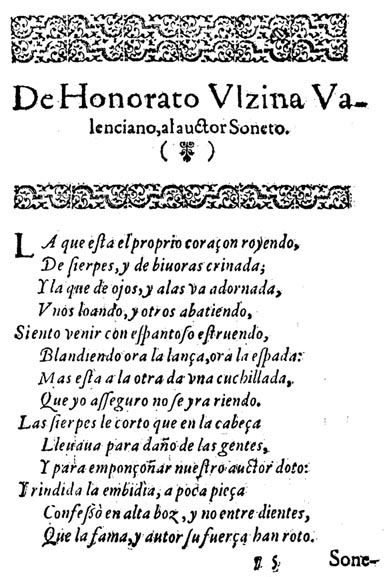 De Honorato Vlzina Va-
lenciano, al auctor Soneto.
LA que eſta el proprio coraçon royendo,
De ſierpes, y de biuoras crinada;
Y la que de ojos, y alas va adornada,
Vnos loando, y otros abatiendo,
Siento venir con eſpantoſo eſtruendo,
Blandiendo ora la lança, ora la eſpada:
Mas eſta a la otra da vna cuchillada,
Que yo aſſeguro no ſe yra riendo.
Las ſierpes le corto que en la cabeça
Lleuaua para daño de las gentes,
Y para emponçoñar nueſtro auctor doto:
Y rindida la embidia, a poca pieça
Confeſſò en alta boz, y no entre dientes,
Que la fama, y autor ſu fuerça han roto.
¶ 5
Sone-